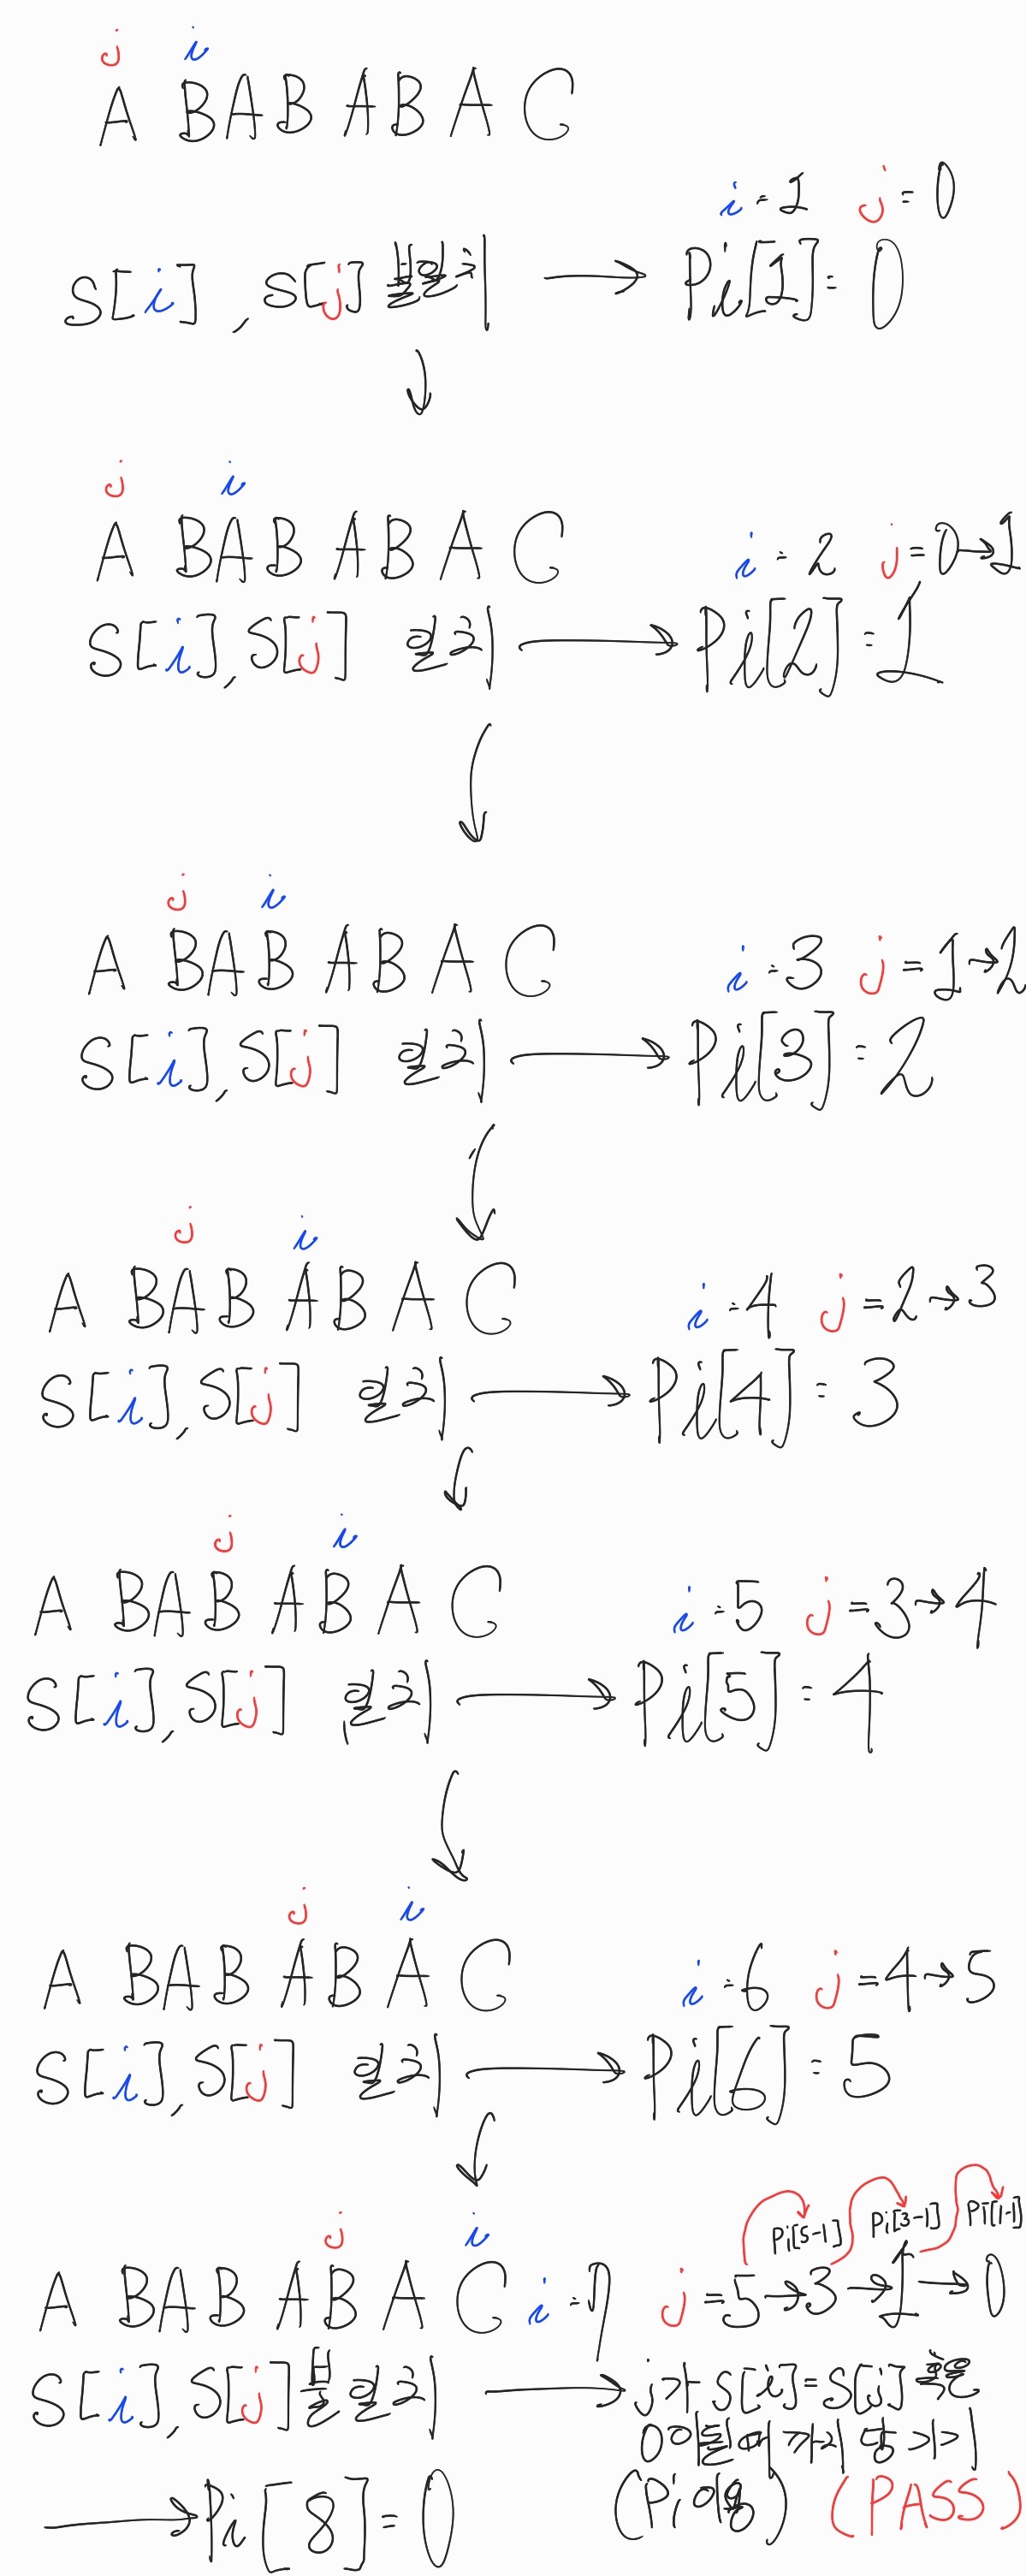 j i
A BAB AB A C
i = 1 j = 0
S[i], S[j] 불일치 → Pi[1] = 0
↓
j i
A BAB AB A C i = 2 j = 0→1
S[i], S[j] 일치 → Pi[2] = 1
↓
j i
A BAB AB A C i = 3 j = 1→2
S[i], S[j] 일치 → Pi[3] = 2
↓
j i
A BAB AB A C i = 4 j = 2→3
S[i], S[j] 일치 → Pi[4] = 3
↓
j i
A BAB AB A C i = 5 j = 3→4
S[i], S[j] 일치 → Pi[5] = 4
↓
j i
A BAB AB A C i = 6 j = 4→5
S[i], S[j] 일치 → Pi[6] = 5
↓
Pi[5-1] Pi[3-1] Pi[1-1]
j i
A BAB AB A C i = 7 j = 5→3→1→0
S[i], S[j] 불일치 → j가 S[i]=S[j] 혹은
0이될때까지 당기기
(Pi이용) (PASS)
→ Pi[8] = 0